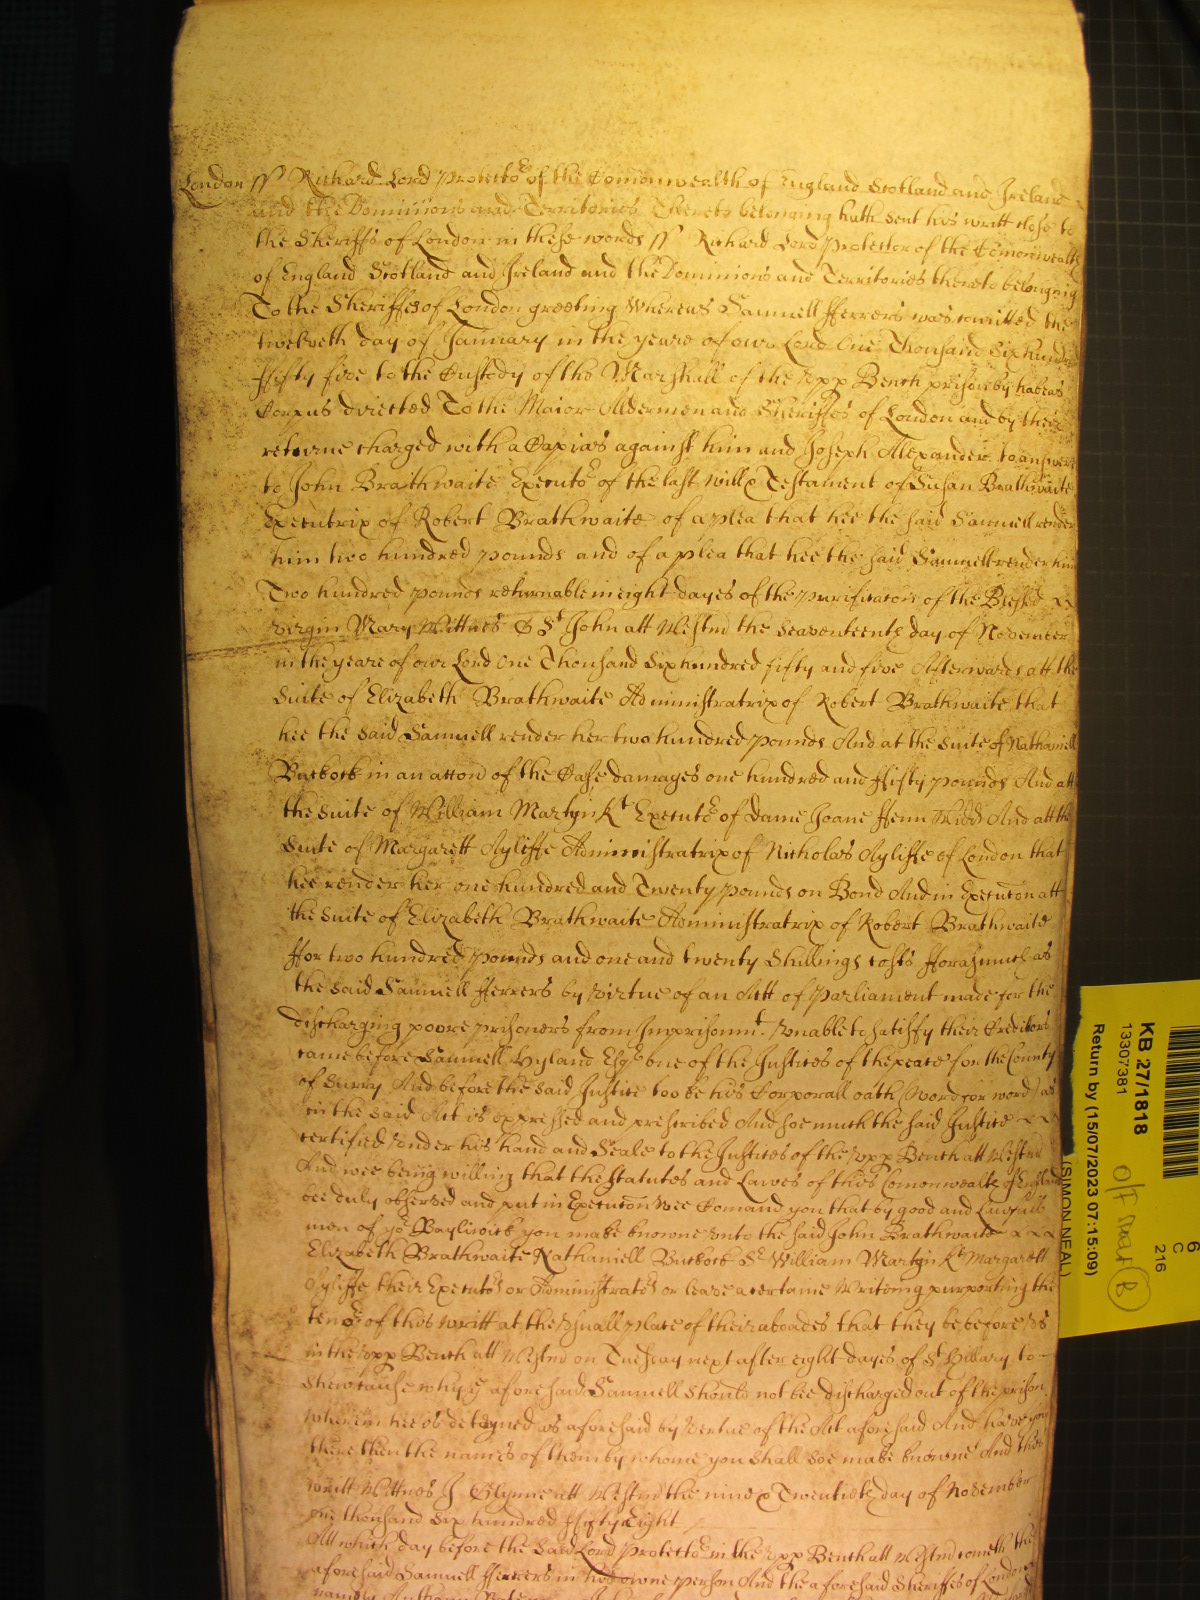 London ss Richard Lord Protector of the Comonwealth of England Scotland and Ireland
and the Dominions and Territories Thereto belonging hath sent his writt close to
the Sheriffs of London in these words ss Richard Lord Protector of the Comonwealth
of England Scotland and Ireland and the Dominions and Territories thereto belonging
To the Sheriffes of London greeting Whereas Samuell fferrers was comitted the
twelveth day of January in the yeare of our Lord One Thousand Six hundred
ffifty five to the Custody of the Marshall of the upp Bench prison by habeas
Corpus directed To the Maior Aldermen and Sheriffes of London and by their
retorne charged with a Capias against him and Joseph Alexander to answere
to John Brathwaite Executor of the last will & Testament of Susan Brathwaite
Executrix of Robert Brathwaite of a plea that hee the said Samuell render
him two hundred pounds and of a plea that hee the said Samuell render him
Two hundred pounds returnable in eight dayes of the purificacon of the Blessed
virgin Mary Wittnes O St John att Westmr the Seaventeenth day of November
in the yeare of our Lord One Thousand Six hundred fifty and five Afterwards att the
Suite of Elizabeth Brathwaite Administratrix of Robert Brathwaite that
hee the said Samuell render her two hundred pounds And at the suite of Nathaniell
Bucbock in an accon of the Case damages one hundred and ffifty pounds And att
the suite of William Martyn Kt Executor of Dame Joane ffenn Widd And att the
Suite of Margarett Ayliffe Administratrix of Nicholas Ayliffe of London that
hee render her one hundred and Twenty pounds on Bond And in Execucon att
the suite of Elizabeth Brathwaite Administratrix of Robert Brathwaite
ffor two hundred pounds and one and twenty Shillings costs fforasmuch as
the said Samuell fferrers by virtue of an Act of Parliament made for the
discharging poore prisoners from Imprisonmt unable to satisfy their Creditors
came before Samuell Hyland Esqr one of the Justices of the peace for the County
of Surry And before the said Justice tooke his Corporall oath (word for word) as
in the said Act is expressed and prescribed And soe much the said Justice
certified under his hand and Seale to the Justices of the upp Bench att Westmr
And wee being willing that the Statutes and Lawes of this Comonwealth of England
bee duly observed and put in Execucon wee Comand you that by good and Lawfull
men of yor Bayliwick you make knowne unto the said John Brathwaite
Elizabeth Brathwaite Nathaniell Bucbock Sr William Martyn Kt Margarett
Ayliffe their Executors or Administrators or leave a certaine Writeing purporting the
tenor of this writt at the usuall place of their aboades that they be before us
in the upp Bench att Westmr on Tuesday next after eight dayes of St Hillary to
shew cause why ye aforesaid Samuell should not bee discharged out of the prison
wherein hee is detayned as aforesaid by vertue of the Act aforesaid And have you
there then the names of them by whome you shall soe make knowne And this
writt Wittnes J Glynne att Westmr the nine & Twentieth day of November
one thousand Six hundred ffifty Eight
Att which day before the said Lord Protector in the upp Bench att Westmr cometh the
aforesaid Samuell fferrers in his owne person And the aforesaid Sheriffes of London
namely Anthony
KB 27/1818
13307381
Return by (15/07/2023 07:15:09)
(SIMON NEAL)
216
C
6